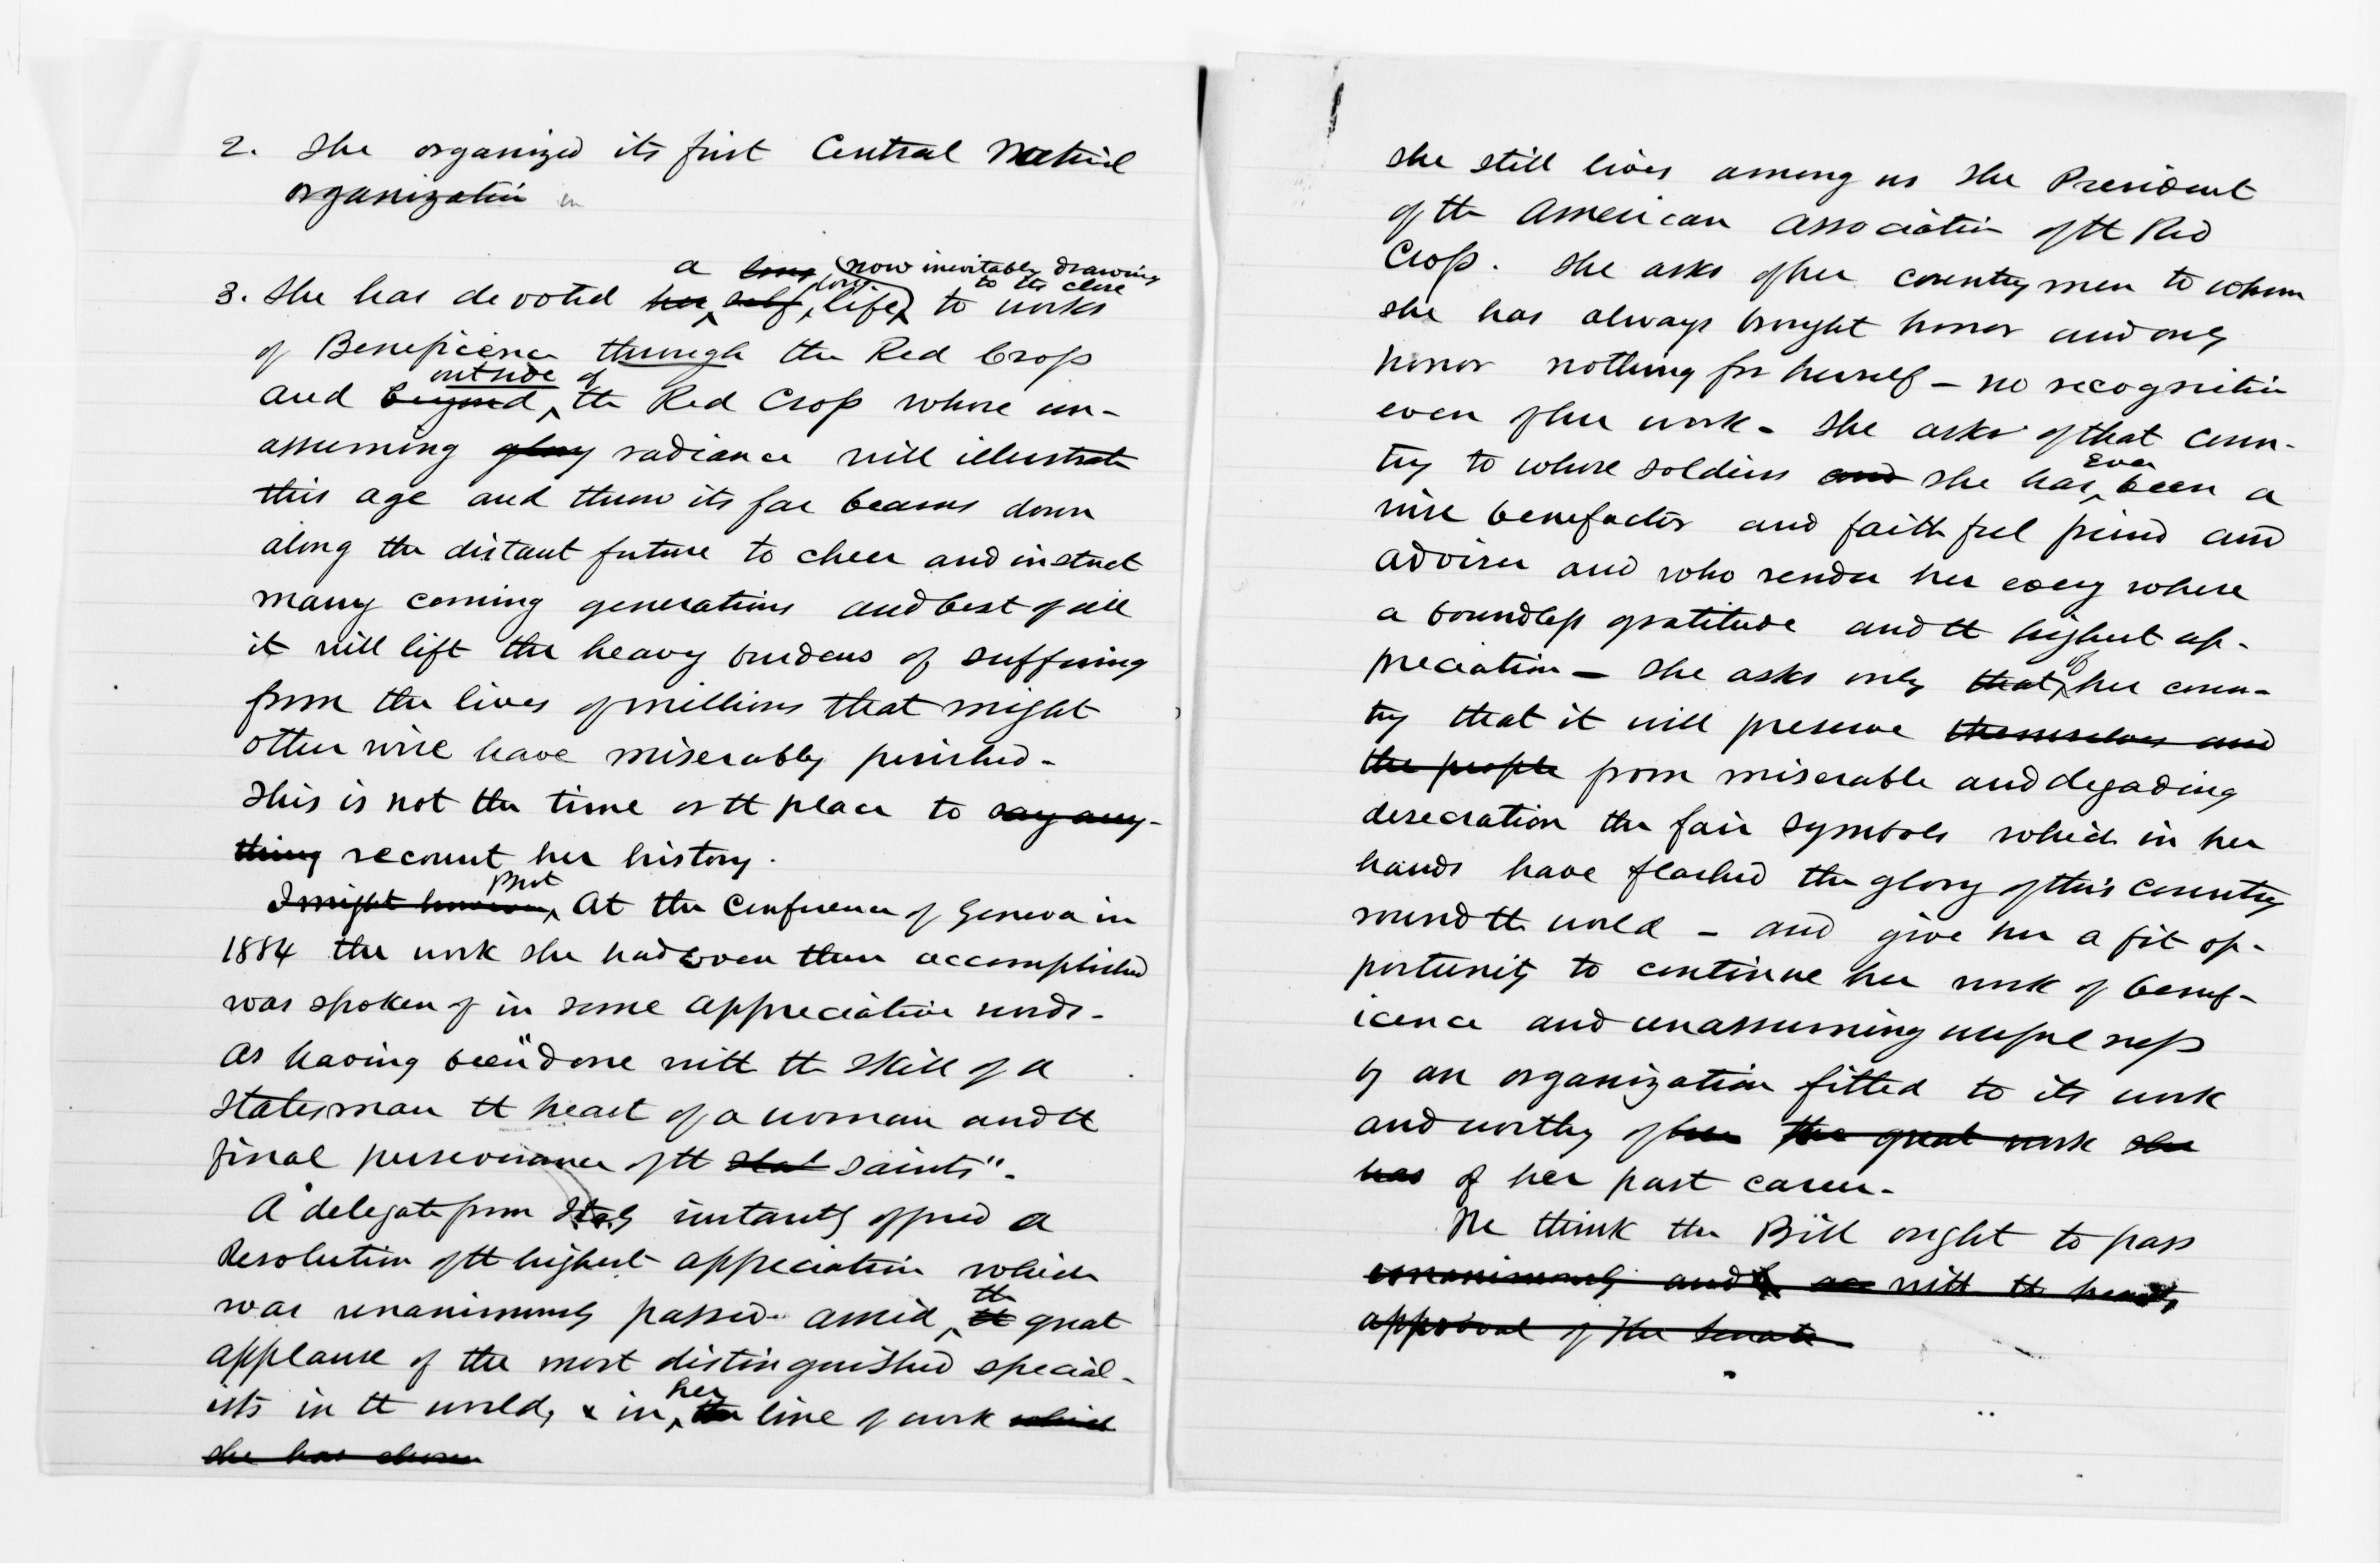 2. She organized its first Central National
organization in
a long (now inevitably drawing
to its close
3. She has devoted her self, long life) to works
of Beneficence through the Red Cross
outside of
and beyond, the Red Cross whose un-
assuming glory radiance will illustrate
this age and throw its far beams down
along the distant future to cheer and instruct
many coming generations and best of all
it will lift the heavy burdens of suffering
from the lives of millions that might
otherwise have miserably perished -
This is not the time or the place to say any-
thing recount her history.
But
I might however, At the Conference of Geneva in
1884 the work she had even then accomplished
was spoken of in some appreciative words -
As having been "done with the skill of a
statesman the heart of a woman and the
final perseverance of the stat saints" -
A delegate from Italy instantly offered a
Resolution of the highest appreciation which
the
was unanimously passed - amid the great
applause of the most distinguished special-
her
ists in the world, & in the line of work which
she has chosen
She still lives among us the President
of the American Association of the Red
Cross. She asks of her countrymen to whom
she has always brought honor and only
honor nothing for herself - no recognition
even of her work - She asks of that coun-
ever
try to whose soldiers and she has been a
wise benefactor and faithful friend and
adviser and who render her every where
a boundless gratitude and the highest ap-
of
preciation - She asks only that her coun-
try that it will preserve themselves and
the people from miserable and degading
desecration the fair symbols which in her
hands have flashed the glory of this country
round the world - and give her a fit op-
portunity to continue her work of benef-
icence and unassuming usefulness
by an organization fitted to its work
and worthy of her the great work she
has of her past career -
We think the Bill ought to pass
unanimously and with the hearty
approval of the Senate